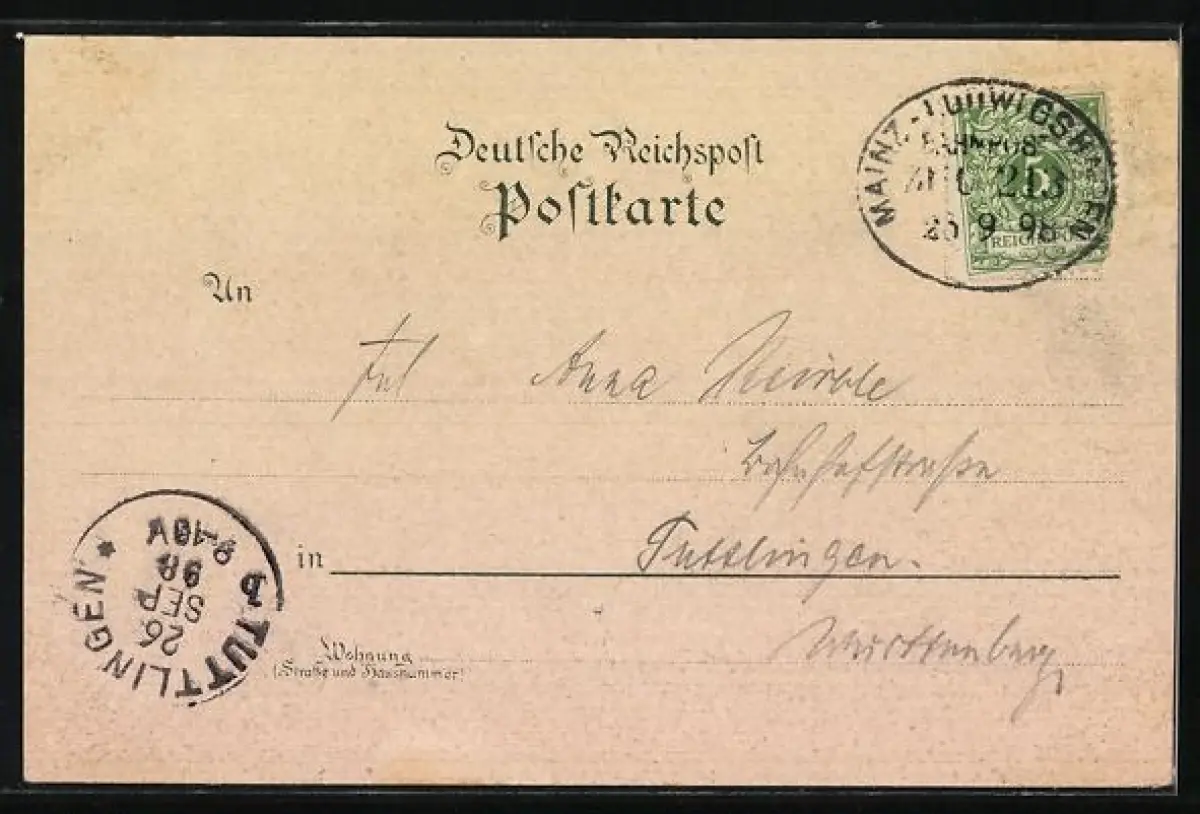 Deutsche Reichspost
Postkarte
MAINZ-LUDWIGSHAFEN
BAHNPOST
ZUG 213
25 9 98
5
REICHSPOST
An
Frl Anna
Bahnhofstraße
in Tuttlingen.
Württemberg
Wohnung
(Straße und Hausnummer)
TUTTLINGEN
26
SEP
98
9-10V